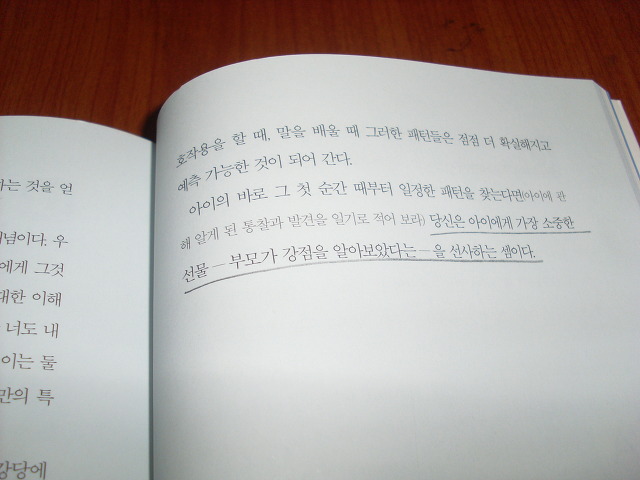 하는 것을 얻
념이다. 우
에게 그것
대한 이해
너도 내
이는 둘
만의 특
강당에
호작용을 할 때, 말을 배울 때 그러한 패턴들은 점점 더 확실해지고
예측 가능한 것이 되어 간다.
아이의 바로 그 첫 순간 때부터 일정한 패턴을 찾는다면(아이에 관
해 알게 된 통찰과 발견을 일기로 적어 보라) 당신은 아이에게 가장 소중한
선물 — 부모가 강점을 알아보았다는 — 을 선사하는 셈이다.